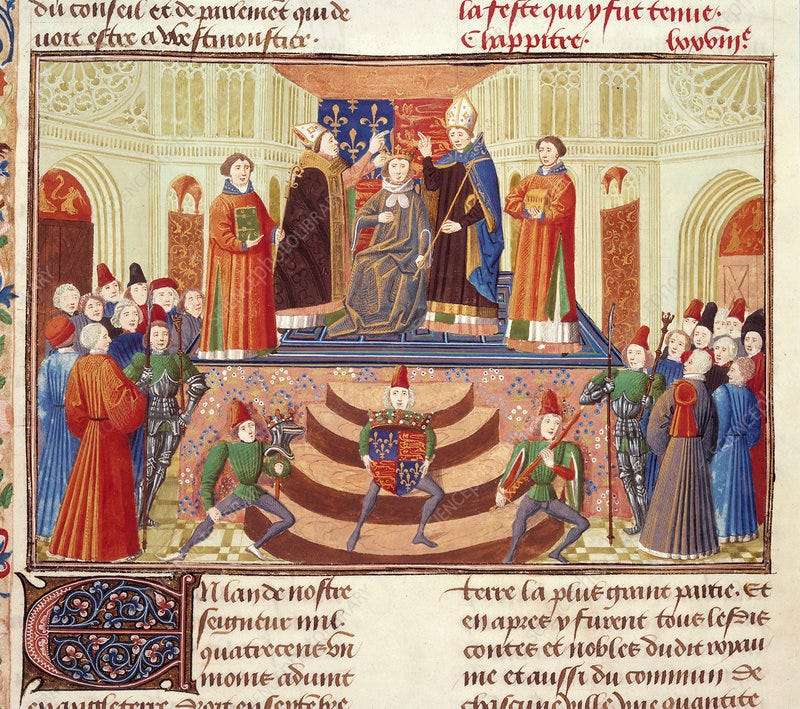 du conseil et de parlement qui de
uoit estre a Westmonstier.
la feste qui y fut tenue.
Chappitre.
En lan de nostre
seigneur mil.
quatrecens vn
moins aduint
en angleterre. Droit en septembre
terre la plus grant partie. Et
en apres y furent tous lesdis
contes et nobles dudit royau
me et aussi du commun de
chascune ville vne quantite
SCIENCEPHOTOLIBRARY